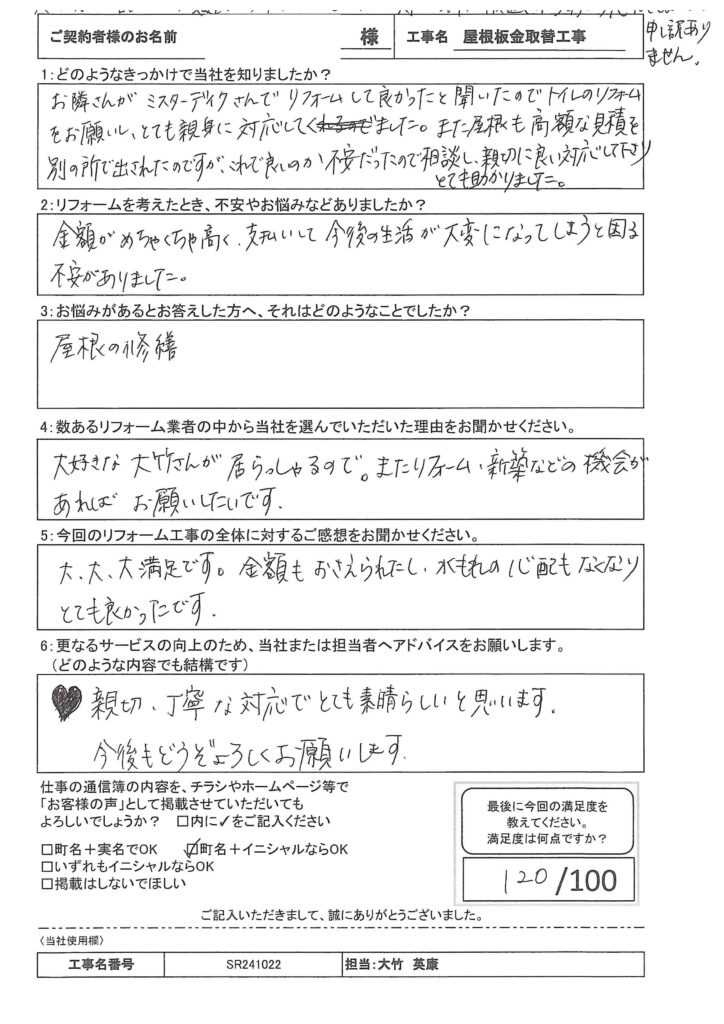 ご契約者様のお名前 様 工事名 屋根板金取替工事
申し訳あり
ません。
1:どのようなきっかけで当社を知りましたか?
お隣さんが ミスターデイクさんで リフォームして良かったと聞いたので トイレのリフォーム
をお願いし、とても親身に対応してくれるのでました。また屋根も高額な見積を
別の所で出されたのですが、これで良いのか不安だったので相談し、親切に良い対応して下さり
とても助かりました。
2:リフォームを考えたとき、不安やお悩みなどありましたか?
金額がめちゃくちゃ高く、支払いして 今後の生活が大変になってしまうと困る
不安がありました。
3:お悩みがあるとお答えした方へ、それはどのようなことでしたか?
屋根の修繕
4:数あるリフォーム業者の中から当社を選んでいただいた理由をお聞かせください。
大好きな 大竹さんが 居らっしゃるので。またリフォーム、新築などの機会が
あれば お願いしたいです.
5:今回のリフォーム工事の全体に対するご感想をお聞かせください。
大、大、大満足です。金額も おさえられたし、水もれの心配もなくなり
とても良かったです.
6:更なるサービスの向上のため、当社または担当者へアドバイスをお願いします。
(どのような内容でも結構です)
♥ 親切、丁寧な対応でとても素晴らしいと思います.
今後もどうぞよろしくお願いします.
仕事の通信簿の内容を、チラシやホームページ等で
「お客様の声」として掲載させていただいても
よろしいでしょうか? □内に✓をご記入ください
□町名+実名でOK ☑町名+イニシャルならOK
□いずれもイニシャルならOK
□掲載はしないでほしい
最後に今回の満足度を
教えてください。
満足度は何点ですか?
120/100
ご記入いただきまして、誠にありがとうございました。
〈当社使用欄〉
工事名番号 SR241022 担当:大竹 英康